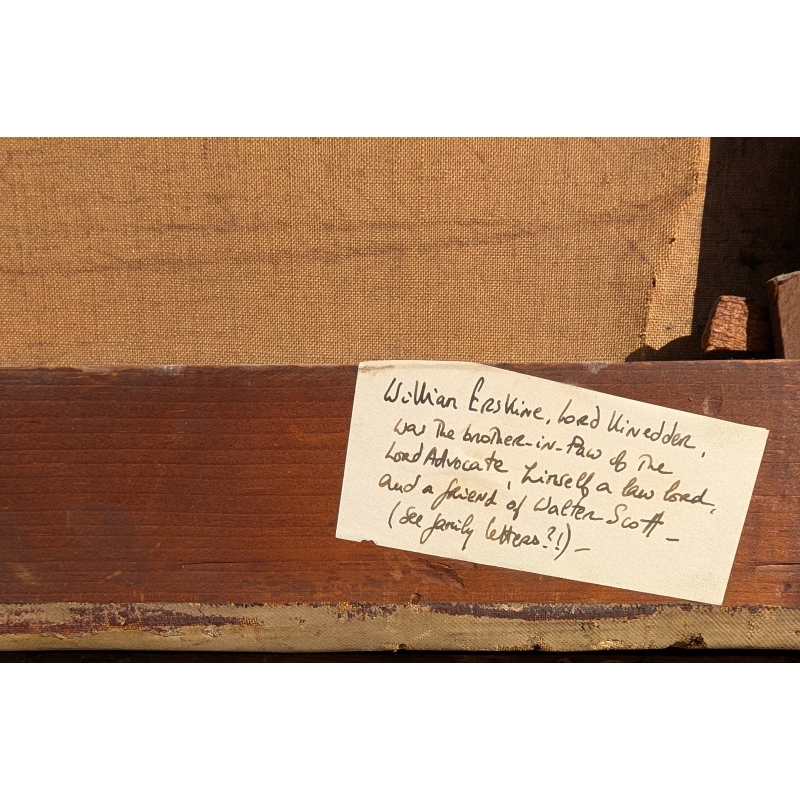 William Erskine, Lord Kinedder,
was The brother-in-law of The
Lord Advocate, himself a law lord,
and a friend of Walter Scott –
(See family letters?!) –